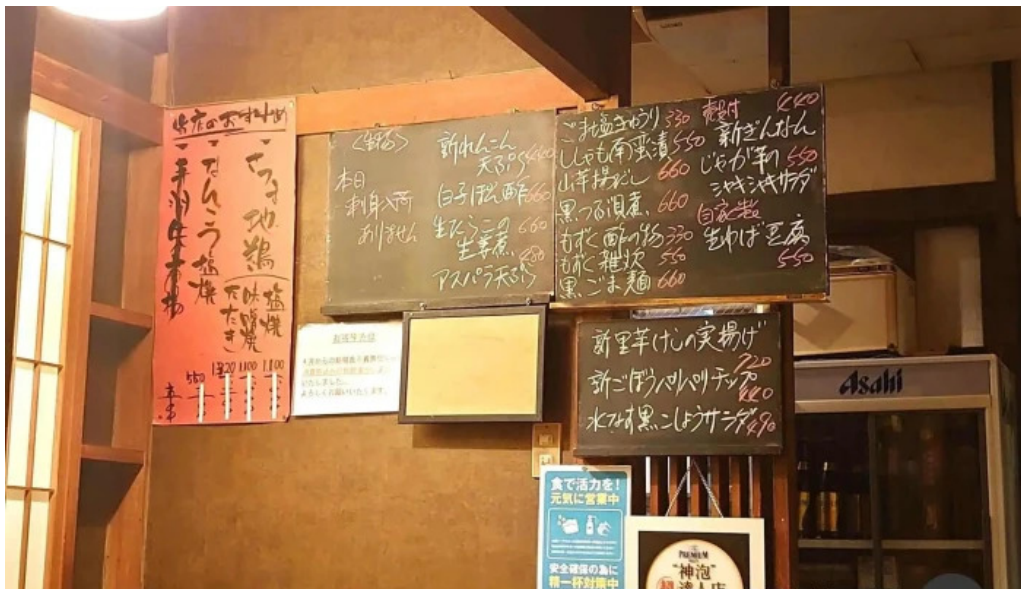 当店のおすすめ
さつま地鶏
塩焼
味噌焼
たたき
なんこつ塩焼
手羽
1100
1100
550
本日
刺身入荷
ありません
新れんこん
天ぷら
白子ぽん酢 660
生たらこの 660
生姜煮
アスパラ天ぷら
ごま塩きゅうり 330
ししゃも南蛮漬 550
山芋揚だし 660
黒つる
もずく酢の物 330
もずく雑炊 550
黒ごま麺 660
殻付 440
新ぎんなん
じゃが芋の 550
シャキシャキサラダ
自家製
生ゆば豆腐
550
新里芋けしの実揚げ
720
新ごぼうパリパリチップ
440
水なす黒こしょうサラダ 490
Asahi
食で活力を!
元気に営業中
安全確保の為に
精一杯対策中
PREMIUM
"神泡"
達人店